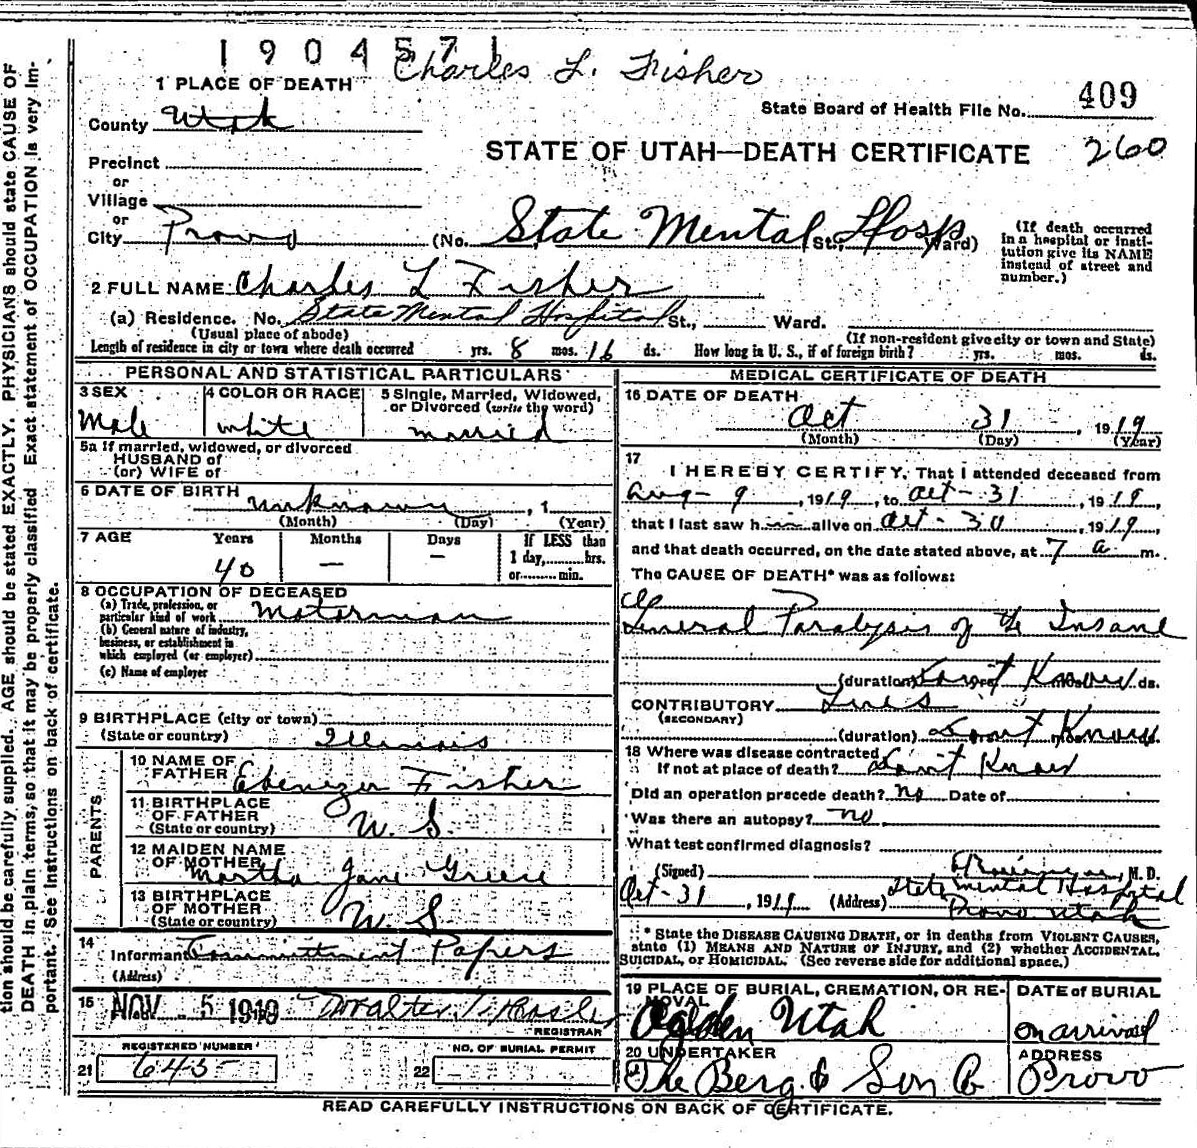 1904571
Charles L. Fisher
1 PLACE OF DEATH
State Board of Health File No. 409
County Utah
STATE OF UTAH—DEATH CERTIFICATE 260
Precinct
or
Village
or
City Provo (No. State Mental Hosp St., Ward)
(If death occurred in a hospital or insti-
tution give its NAME
instead of street and
number.)
2 FULL NAME Charles L Fisher
(a) Residence. No. State Mental Hospital St., Ward.
(Usual place of abode) (If non-resident give city or town and State)
Length of residence in city or town where death occurred yrs. 8 mos. 16 ds. How long in U. S., if of foreign birth? yrs. mos. ds.
PERSONAL AND STATISTICAL PARTICULARS
3 SEX Male
4 COLOR OR RACE white
5 Single, Married, Widowed,
or Divorced (write the word)
married
5a If married, widowed, or divorced
HUSBAND of
(or) WIFE of
6 DATE OF BIRTH unknown , 1
(Month) (Day) (Year)
7 AGE Years Months Days If LESS than
1 day, hrs.
or min.
40 — —
8 OCCUPATION OF DECEASED
(a) Trade, profession, or
particular kind of work Motorman
(b) General nature of industry,
business, or establishment in
which employed (or employer)
(c) Name of employer
9 BIRTHPLACE (city or town)
(State or country) Illinois
PARENTS
10 NAME OF
FATHER Ebenezer Fisher
11 BIRTHPLACE
OF FATHER
(State or country) U. S.
12 MAIDEN NAME
OF MOTHER Martha Jane
13 BIRTHPLACE
OF MOTHER
(State or country) U. S.
14
Informant Committment Papers
(Address)
15 NOV 5 1919 Walter
REGISTRAR
REGISTERED NUMBER
21 645
NO. OF BURIAL PERMIT
22
MEDICAL CERTIFICATE OF DEATH
16 DATE OF DEATH
Oct 31 , 1919
(Month) (Day) (Year)
17
I HEREBY CERTIFY, That I attended deceased from
Aug - 9 , 1919, to Oct - 31 , 1919,
that I last saw him alive on Oct - 30 , 1919,
and that death occurred, on the date stated above, at 7 a m.
The CAUSE OF DEATH* was as follows:
General Paralysis of the Insane
(duration) Don't Know ds.
CONTRIBUTORY Lues
(SECONDARY)
(duration) Don't Know
18 Where was disease contracted
If not at place of death? Don't Know
Did an operation precede death? no Date of
Was there an autopsy? no
What test confirmed diagnosis?
(Signed) , M. D.
Oct - 31 , 1919 (Address) State Mental Hospital
Provo Utah
* State the DISEASE CAUSING DEATH, or in deaths from VIOLENT CAUSES,
state (1) MEANS AND NATURE OF INJURY, and (2) whether ACCIDENTAL,
SUICIDAL, or HOMICIDAL. (See reverse side for additional space.)
19 PLACE OF BURIAL, CREMATION, OR RE-
MOVAL
Ogden Utah
DATE of BURIAL
on arrival
20 UNDERTAKER
The Berg & Son Co
ADDRESS
Provo
READ CAREFULLY INSTRUCTIONS ON BACK OF CERTIFICATE.
tion should be carefully supplied. AGE should be stated EXACTLY. PHYSICIANS should state CAUSE OF
DEATH in plain terms, so that it may be properly classified. Exact statement of OCCUPATION is very im-
portant. See instructions on back of certificate.